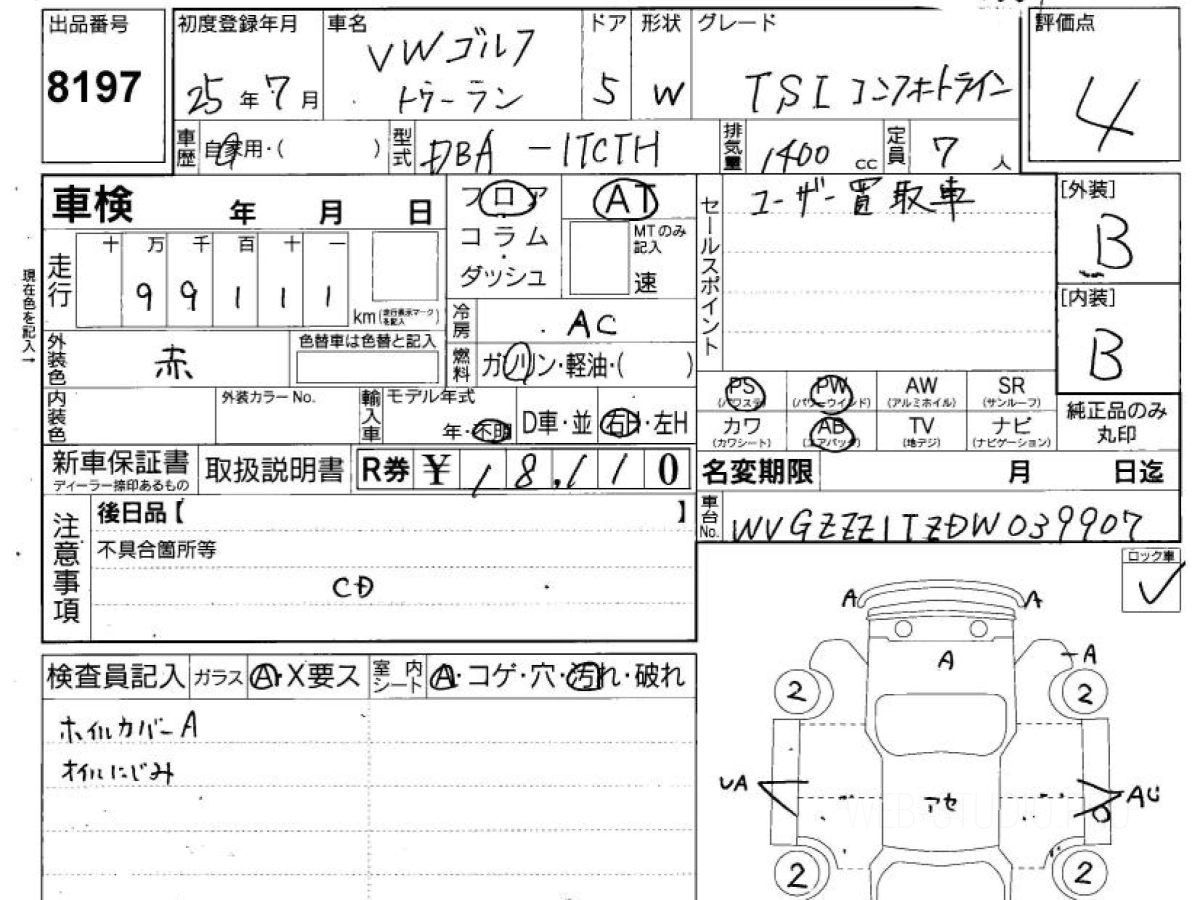 出品番号
8197
初度登録年月
25年7月
車名
VWゴルフ
トゥーラン
ドア
5
形状
W
グレード
TSI コンフォートライン
評価点
4
車歴
自家用・( )
型式
DBA - 1TCTH
排気量
1400 cc
定員
7人
車検 年 月 日
フロア
コラム
ダッシュ
AT
MTのみ記入
速
セールスポイント
ユーザー買取車
[外装]
B
[内装]
B
現在色を記入→
走行
十 万 千 百 十 一
9 9 1 1 1
km (走行表示マークを記入)
冷房
AC
外装色
赤
色替車は色替と記入
燃料
ガソリン・軽油・( )
PS
(パワステ)
PW
(パワーウインド)
AW
(アルミホイル)
SR
(サンルーフ)
カワ
(カワシート)
AB
(エアバッグ)
TV
(地デジ)
ナビ
(ナビゲーション)
純正品のみ
丸印
内装色
外装カラーNo.
輸入車
モデル年式
年・不明
D車・並
右H・左H
新車保証書
ディーラー捺印あるもの
取扱説明書
R券 ¥ 18,110
名変期限 月 日迄
注意事項
後日品【 】
不具合箇所等
CD
車台No.
WVGZZZ1TZDW039907
ロック車
検査員記入
ガラス
A・X要ス
室内シート
A・コゲ・穴・汚れ・破れ
ホイルカバーA
オイルにじみ
A A
A
A
2 2
UA
アセ
AU
2 2